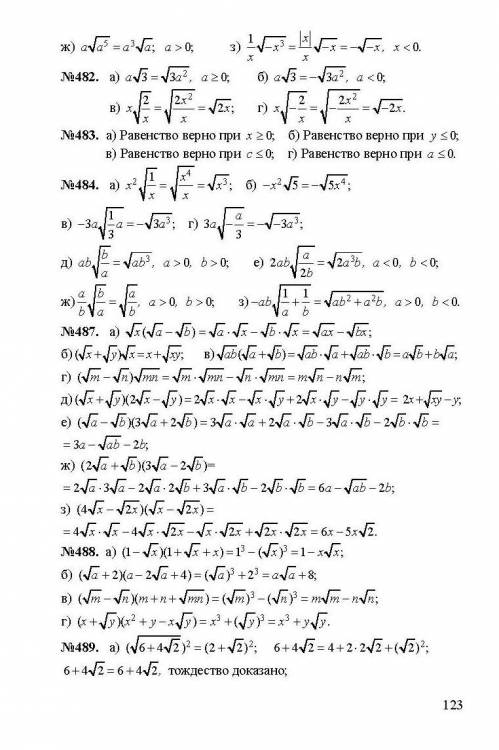 ж) a√a⁵ = a³√a; a > 0; з) 1/x √−x³ = |x|/x √−x = −√−x, x < 0.
№482. а) a√3 = √3a², a ≥ 0; б) a√3 = −√3a², a < 0;
в) x√2/x = √2x²/x = √2x; г) x√−2/x = √−2x²/x = √−2x.
№483. а) Равенство верно при x ≥ 0; б) Равенство верно при y ≤ 0;
в) Равенство верно при c ≤ 0; г) Равенство верно при a ≤ 0.
№484. а) x²√1/x = √x⁴/x = √x³; б) −x²√5 = −√5x⁴;
в) −3a√1/3 a = −√3a³; г) 3a√−a/3 = −√−3a³;
д) ab√b/a = √ab³, a > 0, b > 0; е) 2ab√a/2b = √2a³b, a < 0, b < 0;
ж) a/b √b/a = √a/b, a > 0, b > 0; з) −ab√1/a + 1/b = √ab² + a²b, a > 0, b < 0.
№487. а) √x(√a − √b) = √a · √x − √b · √x = √ax − √bx;
б) (√x + √y)√x = x + √xy; в) √ab(√a + √b) = √ab · √a + √ab · √b = a√b + b√a;
г) (√m − √n)√mn = √m · √mn − √n · √mn = m√n − n√m;
д) (√x + √y)(2√x − √y) = 2√x · √x − √x · √y + 2√x · √y − √y · √y = 2x + √xy − y;
е) (√a − √b)(3√a + 2√b) = 3√a · √a + 2√a · √b − 3√a · √b − 2√b · √b =
= 3a − √ab − 2b;
ж) (2√a + √b)(3√a − 2√b) =
= 2√a · 3√a − 2√a · 2√b + 3√a · √b − 2√b · √b = 6a − √ab − 2b;
з) (4√x − √2x)(√x − √2x) =
= 4√x · √x − 4√x · √2x − √x · √2x + √2x · √2x = 6x − 5x√2.
№488. а) (1 − √x)(1 + √x + x) = 1³ − (√x)³ = 1 − x√x;
б) (√a + 2)(a − 2√a + 4) = (√a)³ + 2³ = a√a + 8;
в) (√m − √n)(m + n + √mn) = (√m)³ − (√n)³ = m√m − n√n;
г) (x + √y)(x² + y − x√y) = x³ + (√y)³ = x³ + y√y.
№489. а) (√6 + 4√2)² = (2 + √2)²; 6 + 4√2 = 4 + 2 · 2√2 + (√2)²;
6 + 4√2 = 6 + 4√2, тождество доказано;
123